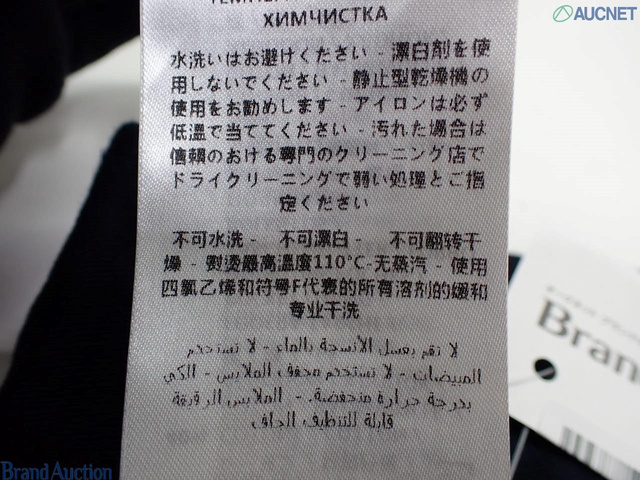 ХИМЧИСТКА
AUCNET
水洗いはお避けください - 漂白剤を使
用しないでください - 静止型乾燥機の
使用をお勧めします - アイロンは必ず
低温で当ててください - 汚れた場合は
信頼のおける専門のクリーニング店で
ドライクリーニングで弱い処理とご指
定ください
不可水洗 - 不可漂白 - 不可翻转干
燥 - 熨烫最高温度110°C-无蒸汽 - 使用
四氯乙烯和符号F代表的所有溶剂的缓和
专业干洗
لا تقم بغسل الأنسجة بالماء - لا تستخدم
المبيضات - لا تستخدم مجفف الملابس - الكي
بدرجة حرارة منخفضة. - الملابس الرقيقة
قابلة للتنظيف الجاف
Bran
Brand Auction